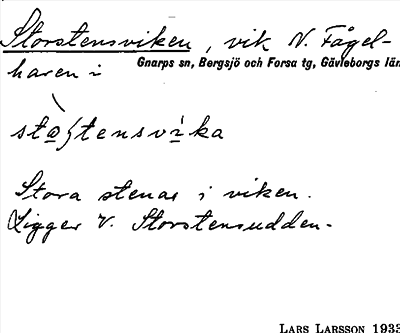 Storstensviken, vik N. Fågel-
haren i
Gnarps sn, Bergsjö och Forsa tg, Gävleborgs län
Stora stenar i viken.
Ligger V. Storstensudden.
LARS LARSSON 1933